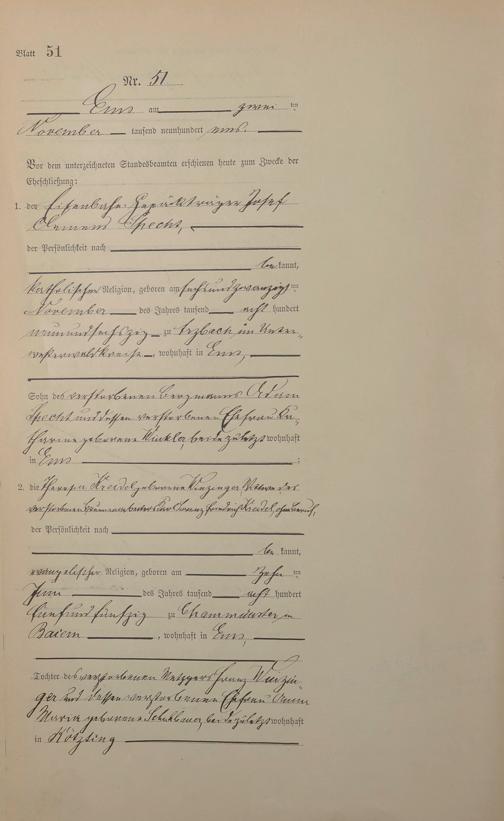 Blatt 51
Nr. 51
Ems am zwei ten
November tausend neunhundert eins.
Vor dem unterzeichneten Standesbeamten erschienen heute zum Zwecke der
Eheschließung:
1. der Eisenbahn-Gepäckträger Josef
Clemens Specht,
der Persönlichkeit nach
be kannt,
katholischer Religion, geboren am sechsundzwanzigsten
November des Jahres tausend acht hundert
neunundsechszig zu Arzbach im Unter-
westerwaldkreise, wohnhaft in Ems,
Sohn des verstorbenen Bergmanns Adam
Specht und dessen verstorbenen Ehefrau Ka-
tharina geborene Winkler, beide zuletzt wohnhaft
in Ems ;
2. die Theresia geborene Witwe des
verstorbenen Friedrich
der Persönlichkeit nach
be kannt,
evangelischer Religion, geboren am zehn ten
Juni des Jahres tausend acht hundert
fünfundfünfzig zu Chammünster, in
Baiern, wohnhaft in Ems,
Tochter des verstorbenen Metzgers Franz
und dessen verstorbenen Ehefrau Anna
Maria geborene beide zuletzt wohnhaft
in Kötzting